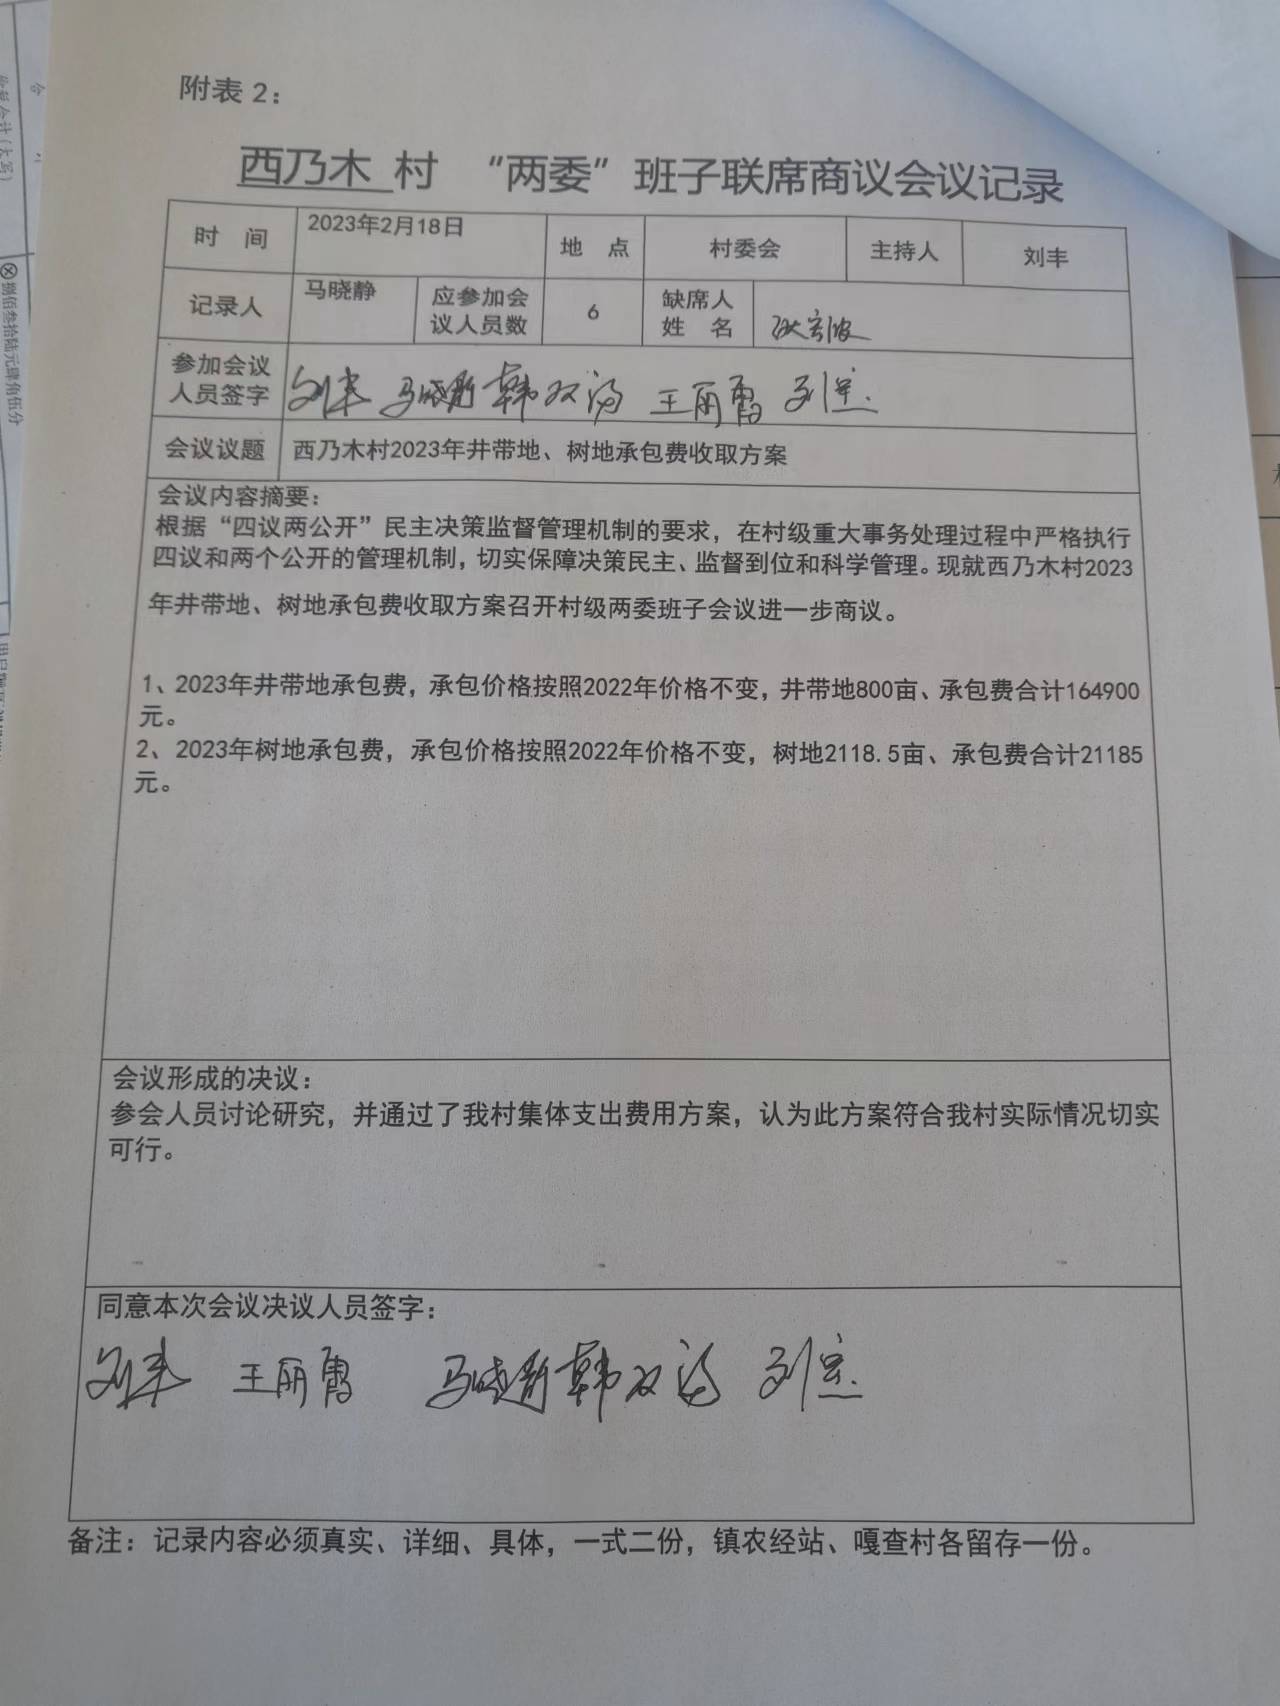 附表2：
西乃木 村 “两委”班子联席商议会议记录
时 间 2023年2月18日 地 点 村委会 主持人 刘丰
记录人 马晓静 应参加会议人员数 6 缺席人姓名
参加会议人员签字 刘丰 马晓静 韩双 王丽霞 刘宏
会议议题 西乃木村2023年井带地、树地承包费收取方案
会议内容摘要：
根据“四议两公开”民主决策监督管理机制的要求，在村级重大事务处理过程中严格执行
四议和两个公开的管理机制，切实保障决策民主、监督到位和科学管理。现就西乃木村2023
年井带地、树地承包费收取方案召开村级两委班子会议进一步商议。
1、2023年井带地承包费，承包价格按照2022年价格不变，井带地800亩、承包费合计164900
元。
2、2023年树地承包费，承包价格按照2022年价格不变，树地2118.5亩、承包费合计21185
元。
会议形成的决议：
参会人员讨论研究，并通过了我村集体支出费用方案，认为此方案符合我村实际情况切实
可行。
同意本次会议决议人员签字：
刘丰 王丽霞 马晓静 韩双 刘宏
备注：记录内容必须真实、详细、具体，一式二份，镇农经站、嘎查村各留存一份。
捌佰叁拾陆元肆角伍分